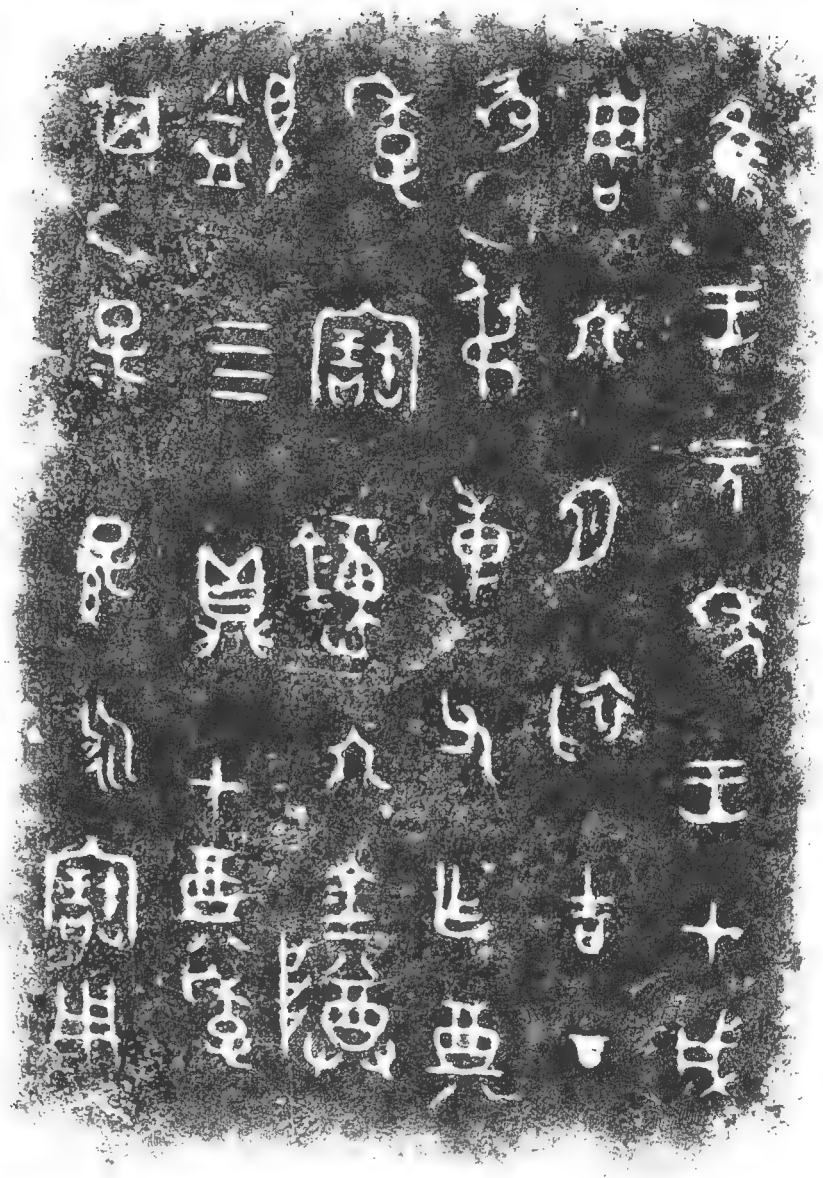 隹王元年王才成
周六月初吉丁
亥弔尃父乍奠
季寶鐘六金尊
盨四鼎七奠季
其子孫永寶用